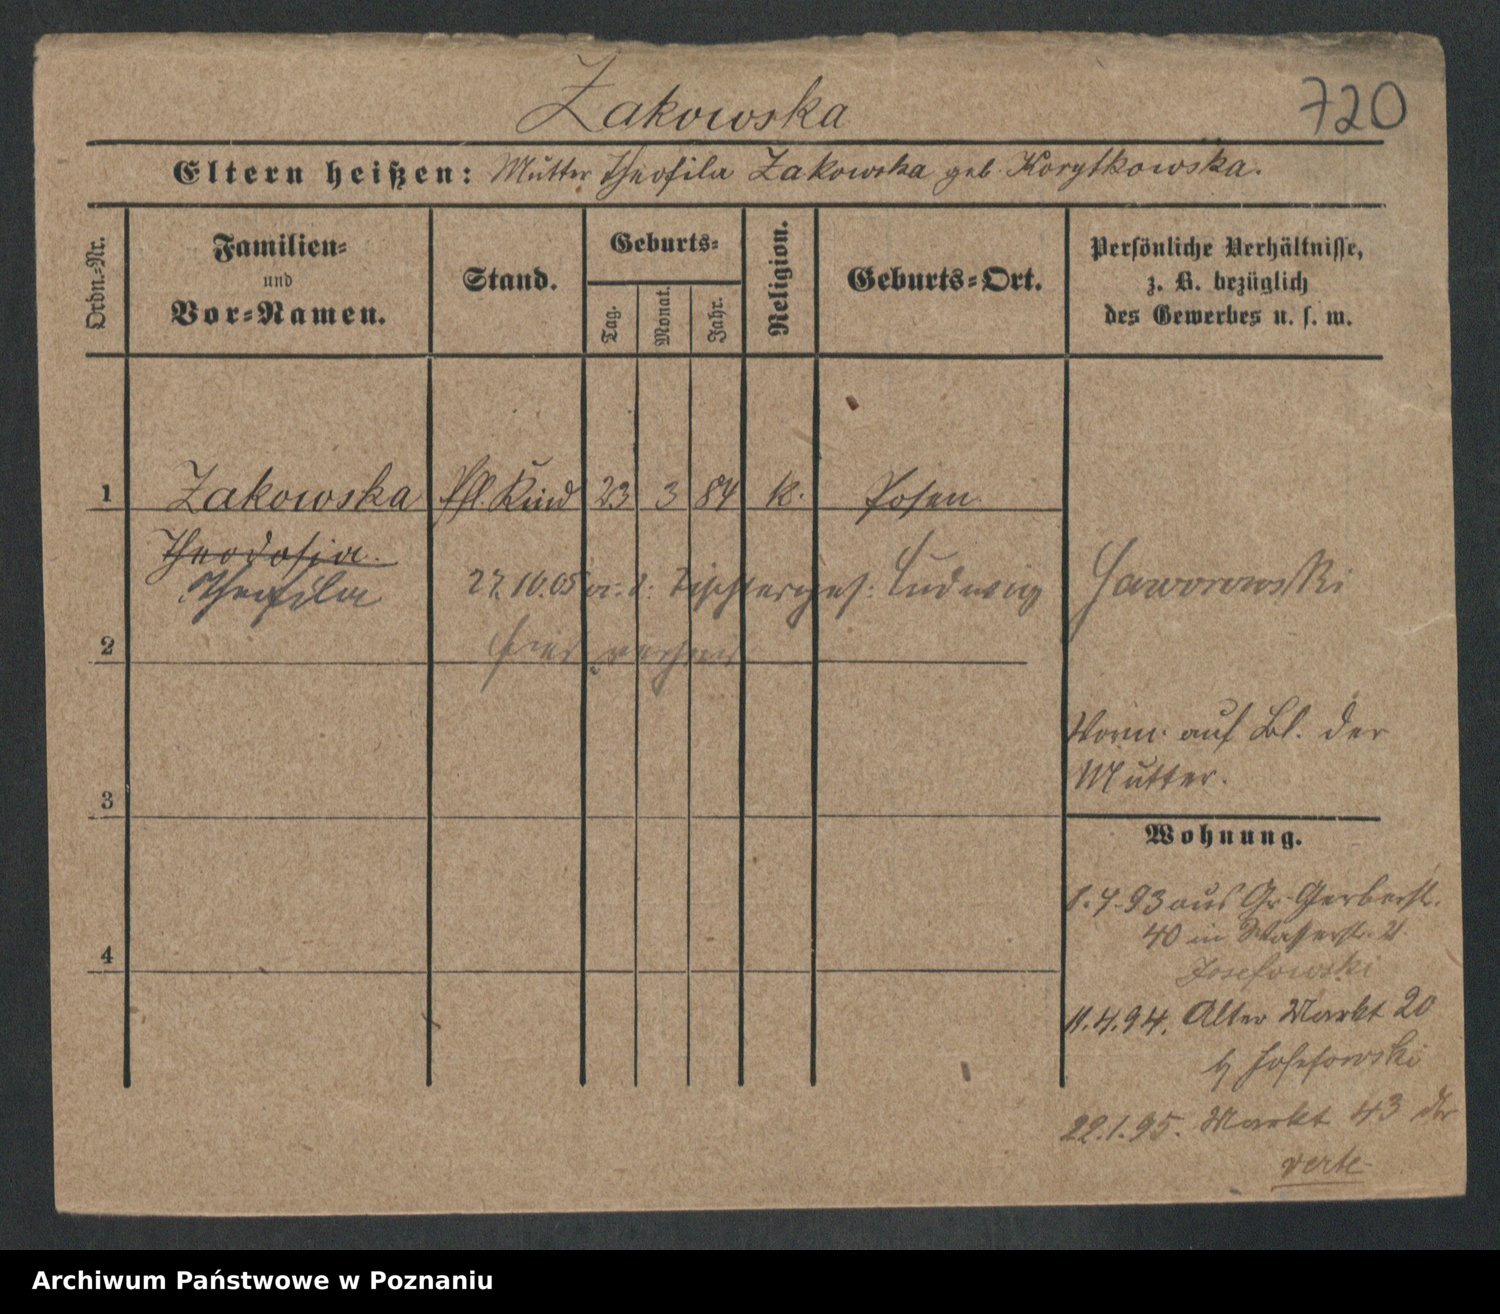 Zakowska
720
Eltern heißen: Mutter Theofila Zakowska geb. Korytkowska.
Ordn.-Nr.
Familien- und Vor-Namen.
Stand.
Geburts-
Tag.
Monat.
Jahr.
Religion.
Geburts-Ort.
Persönliche Verhältnisse, z. B. bezüglich des Gewerbes u. s. w.
1 Zakowska Pfl. Kind 23 3 84 k. Posen
Theodosia
Theofila 27.10.05 Tischlerges: Ludwig Jaworowski
2 hier
Vorm. auf Bl. der
Mutter.
3
Wohnung.
8.4.93 aus Gr. Gerberst.
40 in Wasserstr. 21
Josefowski
4
11.4.94. Alter Markt 20
b/ Josefowski
22.1.95. Markt 43
verte
Archiwum Państwowe w Poznaniu